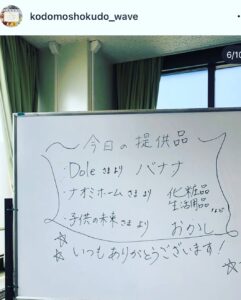 kodomoshokudo_wave
6/10
~今日の提供品~
・Doleさまより バナナ
・ナオミホームさまより 化粧品
生活用品など
・子供の未来さまより おかし
☆いつもありがとうございます!